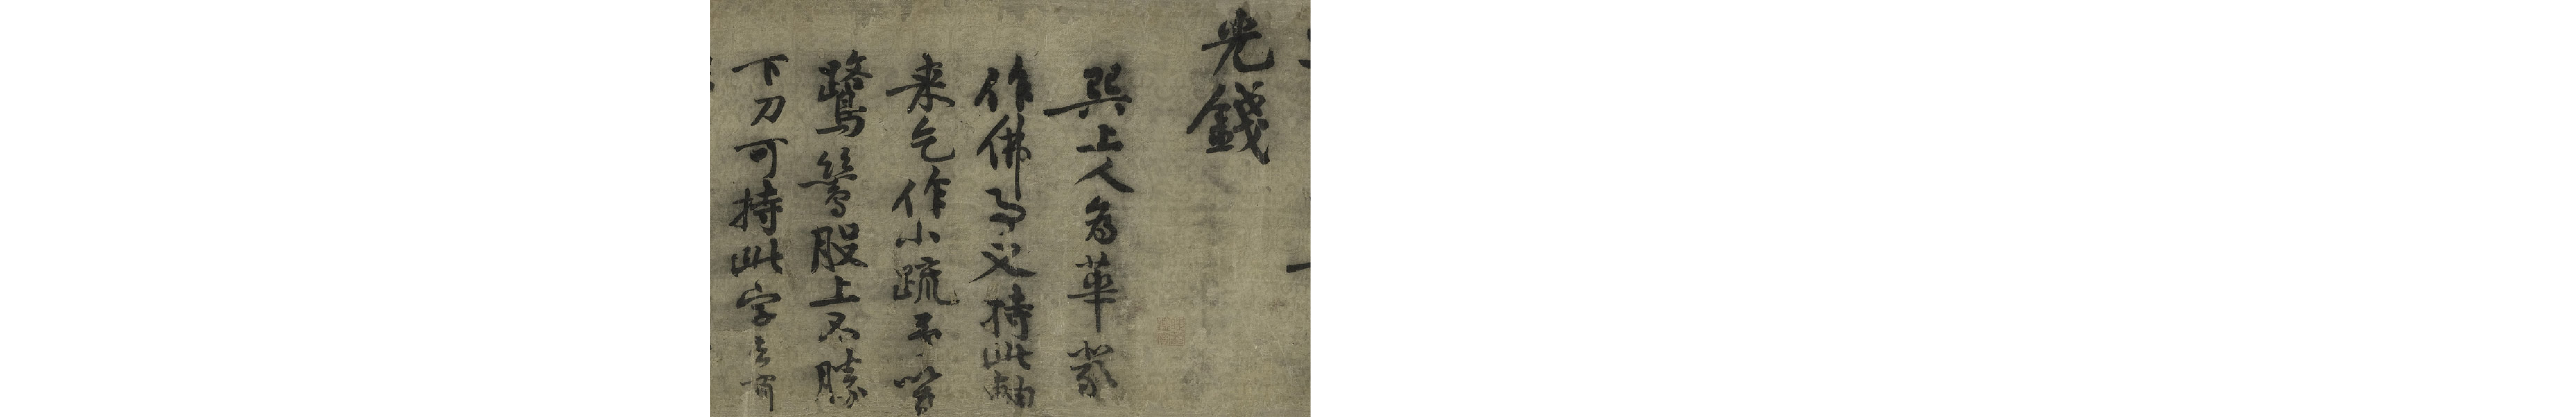 光錢
巽上人為華藂
作佛事又持此軸
来乞作小疏予笑
鷺鷥股上不勝
下刀可持此字去